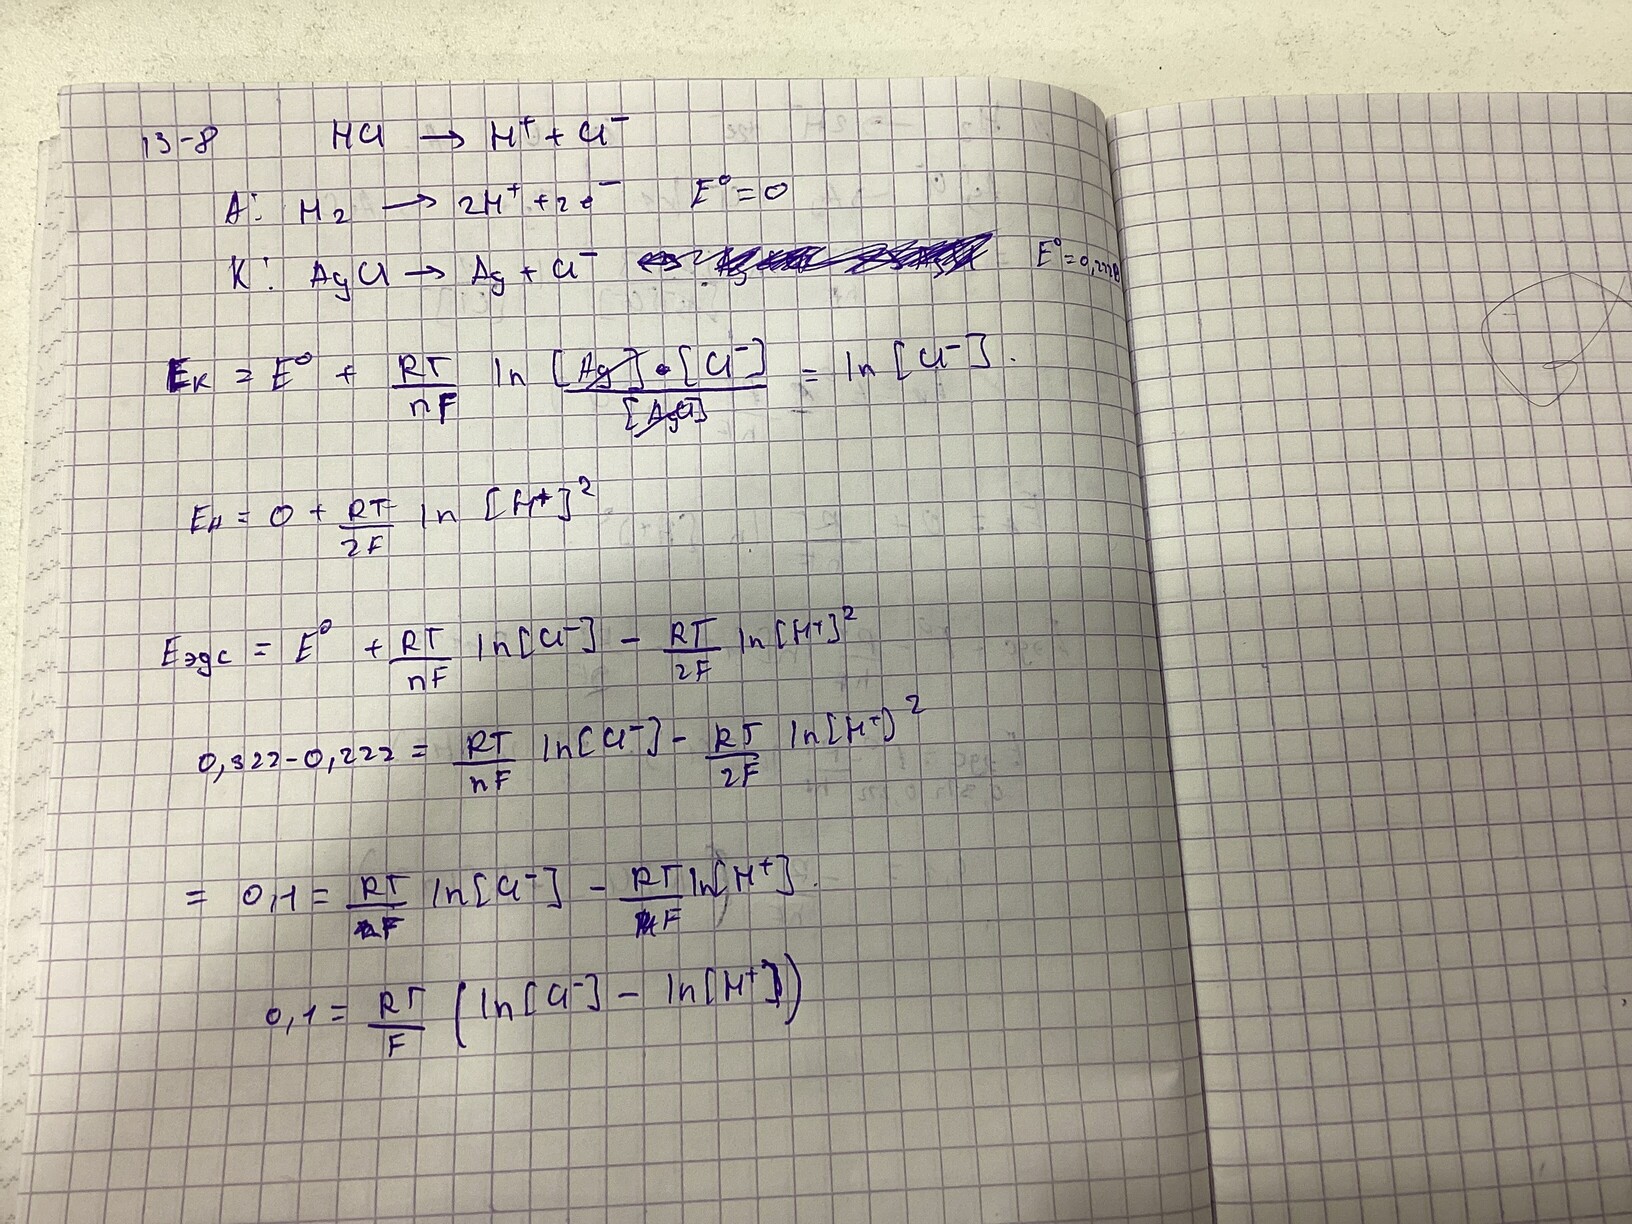 13-8 HCl → H⁺ + Cl⁻
A: H₂ → 2H⁺ + 2e⁻ E⁰ = 0
K: AgCl → Ag + Cl⁻ E⁰ = 0,222В
Eк = E⁰ + RT/nF ln [Ag]·[Cl⁻]/[AgCl] = ln [Cl⁻].
EА = 0 + RT/2F ln [H⁺]²
Eэдс = E⁰ + RT/nF ln[Cl⁻] – RT/2F ln[H⁺]²
0,322-0,222 = RT/nF ln[Cl⁻] – RT/2F ln[H⁺]²
= 0,1 = RT/F ln[Cl⁻] – RT/F ln[H⁺].
0,1 = RT/F (ln[Cl⁻] – ln[H⁺])